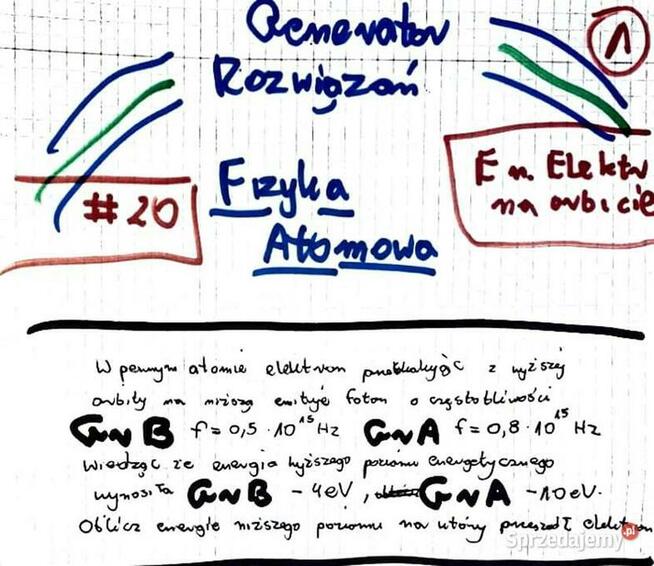 Generator
Rozwiązań
1
# 20
Fizyka
Atomowa
En. Elektr
na orbicie
W pewnym atomie elektron przeskakując z wyższej
orbity na niższą emituje foton o częstotliwości
Gr B f = 0,5 · 10¹⁵ Hz Gr A f = 0,8 · 10¹⁵ Hz
Wiedząc że energia wyższego poziomu energetycznego
wynosiła Gr B - 4eV, Gr A - 10eV.
Oblicz energię niższego poziomu na który przeszedł elektron
Sprzedajemy.pl